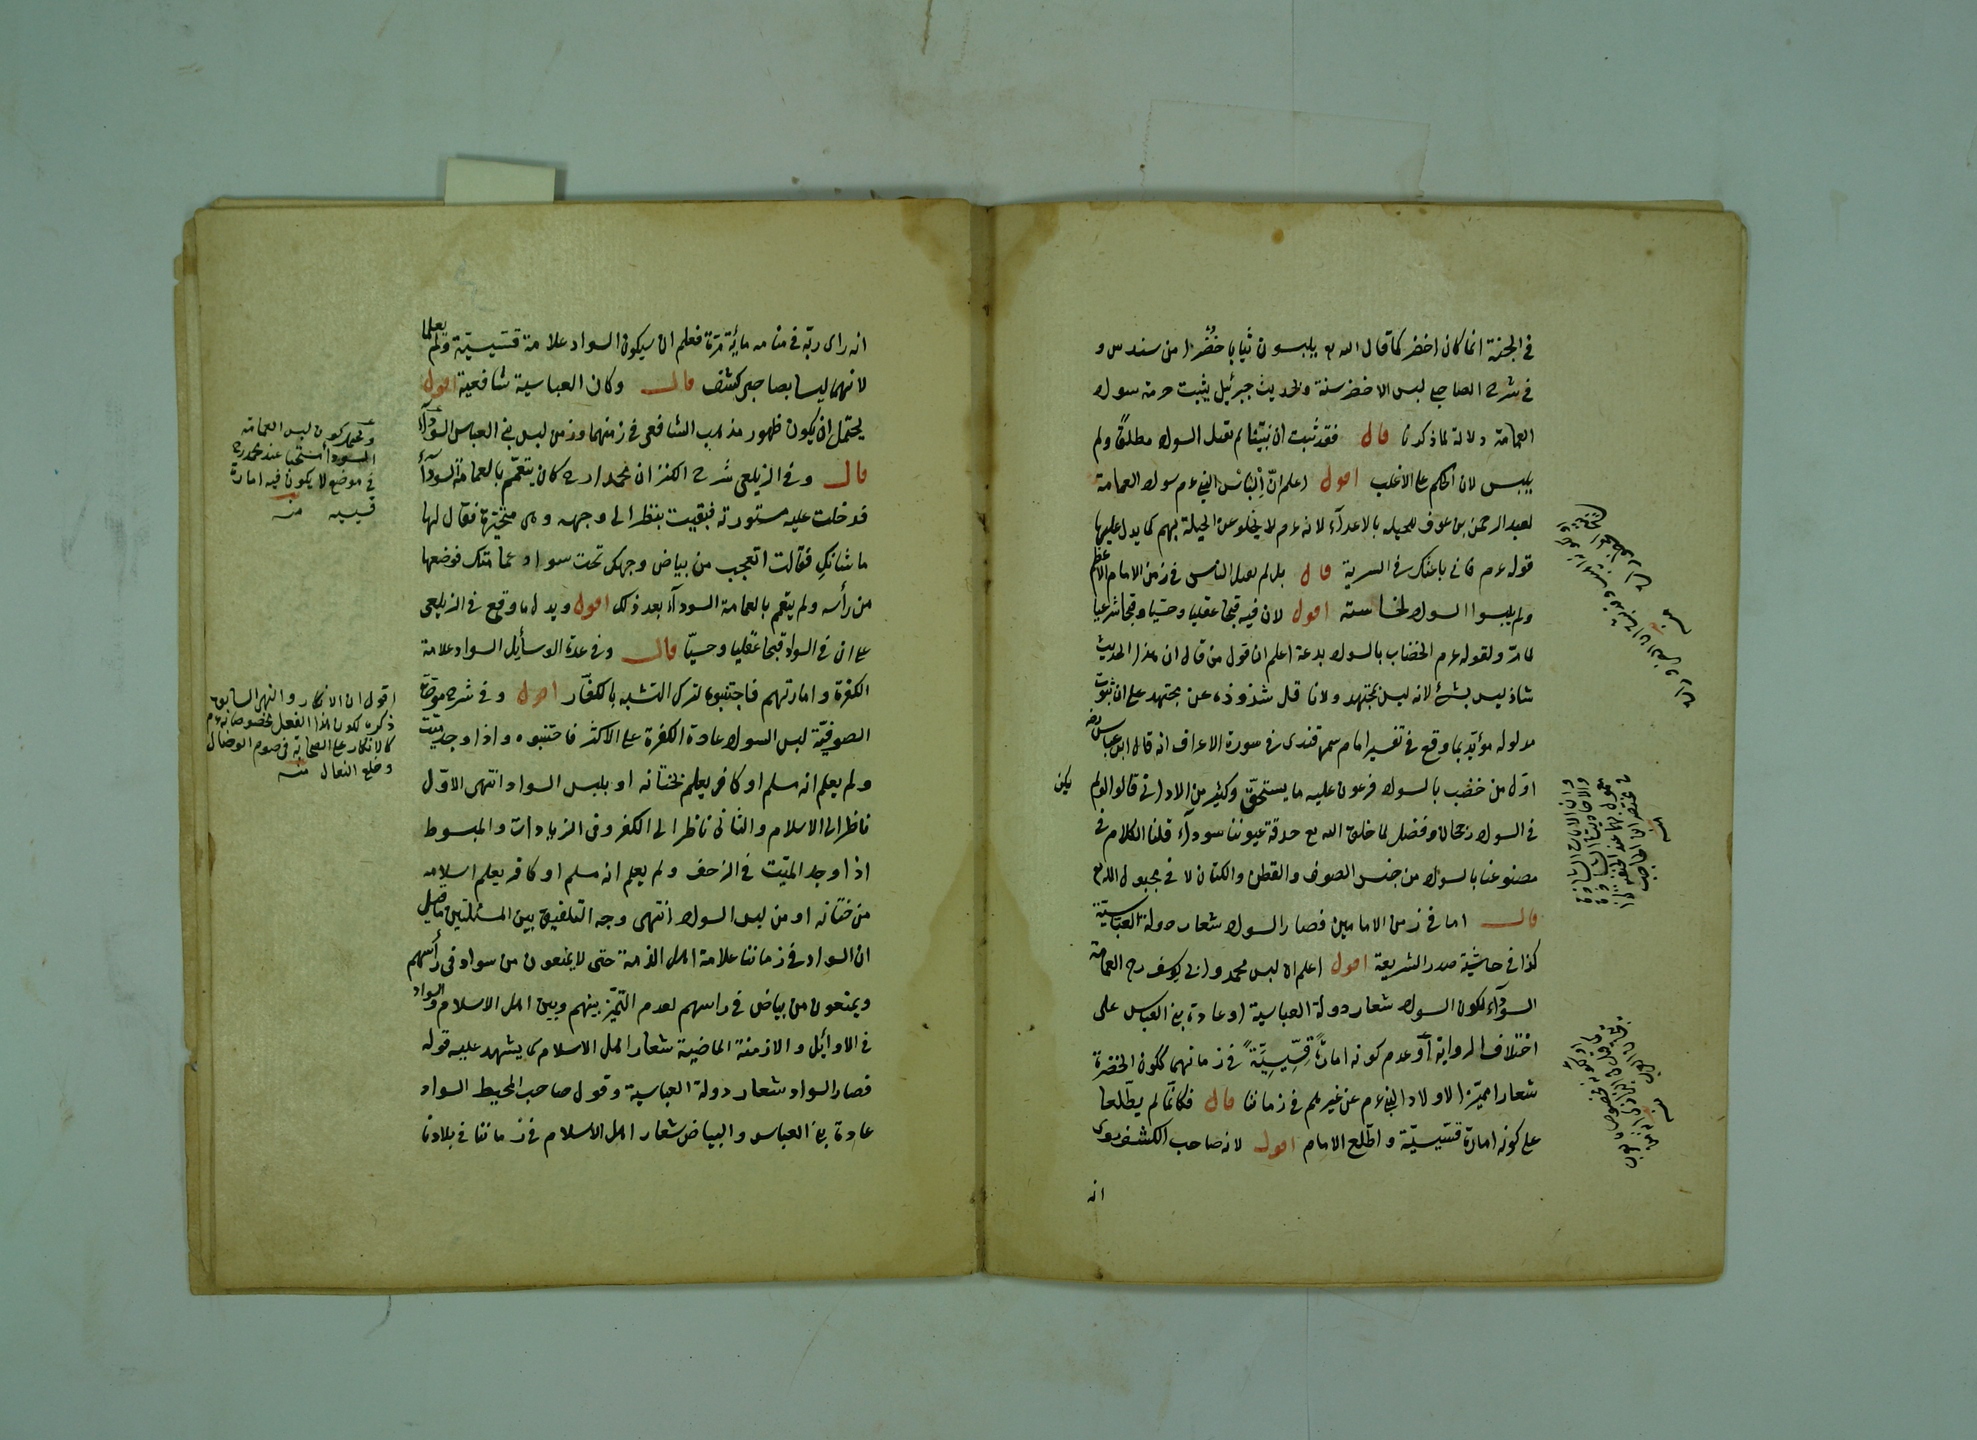 في الجنة انما كان اخضر كما قال الله تع يلبسون ثيابا خُضْرا من سندس و
في شرح المصابيح لبس الاخضر سنة ولحديث جبرئيل يثبت حرمة سواد
العمامة دلالة لما ذكرنا قال فقد ثبت ان نبيّنا لم يفعل السواد مطلقًا ولم
يلبس لان الحكم على الاغلب اقول اعلم انّ اِلْباسَ النبي عم سواد العمامة
لعبد الرحمن بن عوف للحيلة بالاعدآء لانه عم لا يخلو عن الحيلة بهم كما يدل عليها
قوله عم فاني باعثك في السرية قال بل لم يفعل الناس في زمن الامام الاعظم
ولم يلبسوا السواد لخاسته اقول لان فيه قبحا عقليا وحسّيا وقبحا شرعيا
لما مر ولقوله عم الخضاب بالسواد بدعة اعلم ان قول من قال ان هذا الحديث
شاذ ليس بشئ لانه ليس بمجتهد ولا نا قل شذوذه عن مجتهد على ان ثبوت
مدلوله مؤيد بما وقع في تفسير امام سمرقندى في سورة الاعراف انه قال ابن عباس رضه
اوّل من خضب بالسواد فرعون عليه ما يستحقّ وكثير من الاداني قالوا لو لم يكن
في السواد رجحان وفضل لما خلق الله تع حدقة عيوننا سودآء قلنا الكلام في
مصنوعنا بالسواد من جنس الصوف والقطن والكتان لا في مجبول الله تع
قال اما في زمن الامامين فصار السواد شعار دولة العباسيّة
كذا في حاشية صدر الشريعة اقول اعلم ان لبس محمد وابي يوسف رح العمامة
السودآء لكون السواد شعار دولة العباسية او عادة بني العباس على
اختلاف الرواية او عدم كونه امارةً قِسّيسِيّةً في زمانهما ككون الخضرة
شعارا مميّزا لاولاد النبي عم عن غيرهم في زماننا قال فكانّما لم يطّلعا
على كونه امارة قسّيسيّة واطّلع الامام اقول لانه صاحب الكشف روى
انه
انه راى ربّه في منامه مائة مرّة فعلم ان سيكون السواد علامة قسّيسيّة ولم يعلما
لانهما ليسا بصاحبي كشف قال وكان العباسية شافعية اقول
يحتمل ان يكون ظهور مذهب الشافعى في زمنهما وزمن لبس بني العباس السودآء
قال وفي الزيلعى شرح الكنز ان محمدا رح كان يتعمّم بالعمامة السودآء
فدخلت عليه مستورته فبقيت ينظر الى وجهه وهى متحيّرة فقال لها
ما شانكِ فقالت اتعجب من بياض وجهك تحت سواد عمامتك فوضعها
من رأسه ولم يتعمم بالعمامة السودآء بعد ذلك اقول ويدل ما وقع في الزيلعى
على ان في السواد قبحا عقليا وحسيّا قال وفي عدة الوسائل السواد علامة
الكفرة وامارتهم فاجتنبوه لترك التشبه بالكفّار اقول وفي شرح
الصوفيّة لبس السواد عادة الكفرة على الاكثر فاجتنبوه واذا وجد ميّت
ولم يعلم انه مسلم او كافر يعلم بختانه او بلبس السواد انتهى الاوّل
ناظر الى الاسلام والثانى ناظر الى الكفر وفى الزيادات والمبسوط
اذا وجد الميّت في الزحف ولم يعلم انه مسلم او كافر يعلم اسلامه
من ختانه او من لبس السواد انتهى وجه التلفيق بين المسئلتين ما قيل
ان السواد في زماننا علامة اهل الذمة حتى لا يمنعون من سواد فى رأسهم
ويمنعون من بياض في راسهم لعدم التميّز بينهم وبين اهل الاسلام والسواد
في الاوائل والازمنة الماضية شعار اهل الاسلام كما يشهد عليه قوله
فصار السواد شعار دولة العباسية وقول صاحب المحيط السواد
عادة بني العباس والبياض شعار اهل الاسلام في زماننا في بلادنا
ويحتمل كون لبس العمامة
السودآء مستحبا عند محمد رح
في موضع لا يكون فيه امارة
قسيسية منه
اقول ان الانكار والنهى السابق
ذكره لكون هذا الفعل مخصوصا به عم
كالانكار على الصحابة في صوم الوصال
وخلع النعال منه